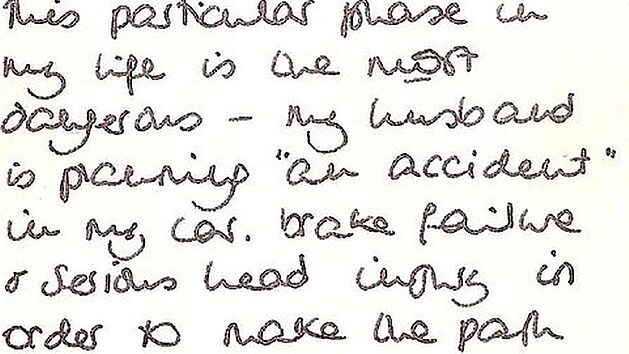 this particular phase in
my life is the most
dangerous - my husband
is planning "an accident"
in my car. brake failure
& serious head injury in
order to make the path